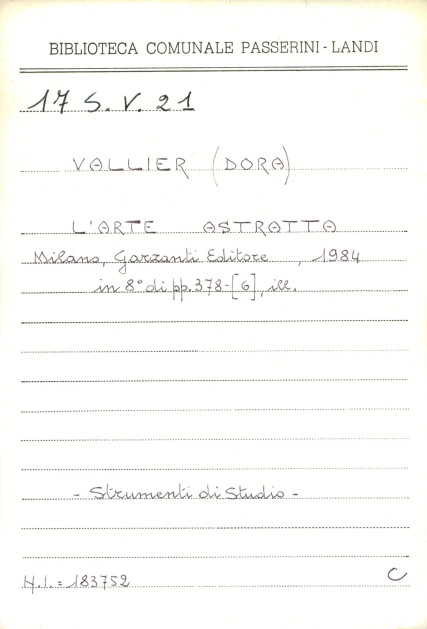 BIBLIOTECA COMUNALE PASSERINI-LANDI
17 S. V. 21
VALLIER (DORA)
L'ARTE ASTRATTA
Milano, Garzanti Editore, 1984
in 8° di pp. 378-[6], ill.
- Strumenti di Studio -
N.I. = 183752
C